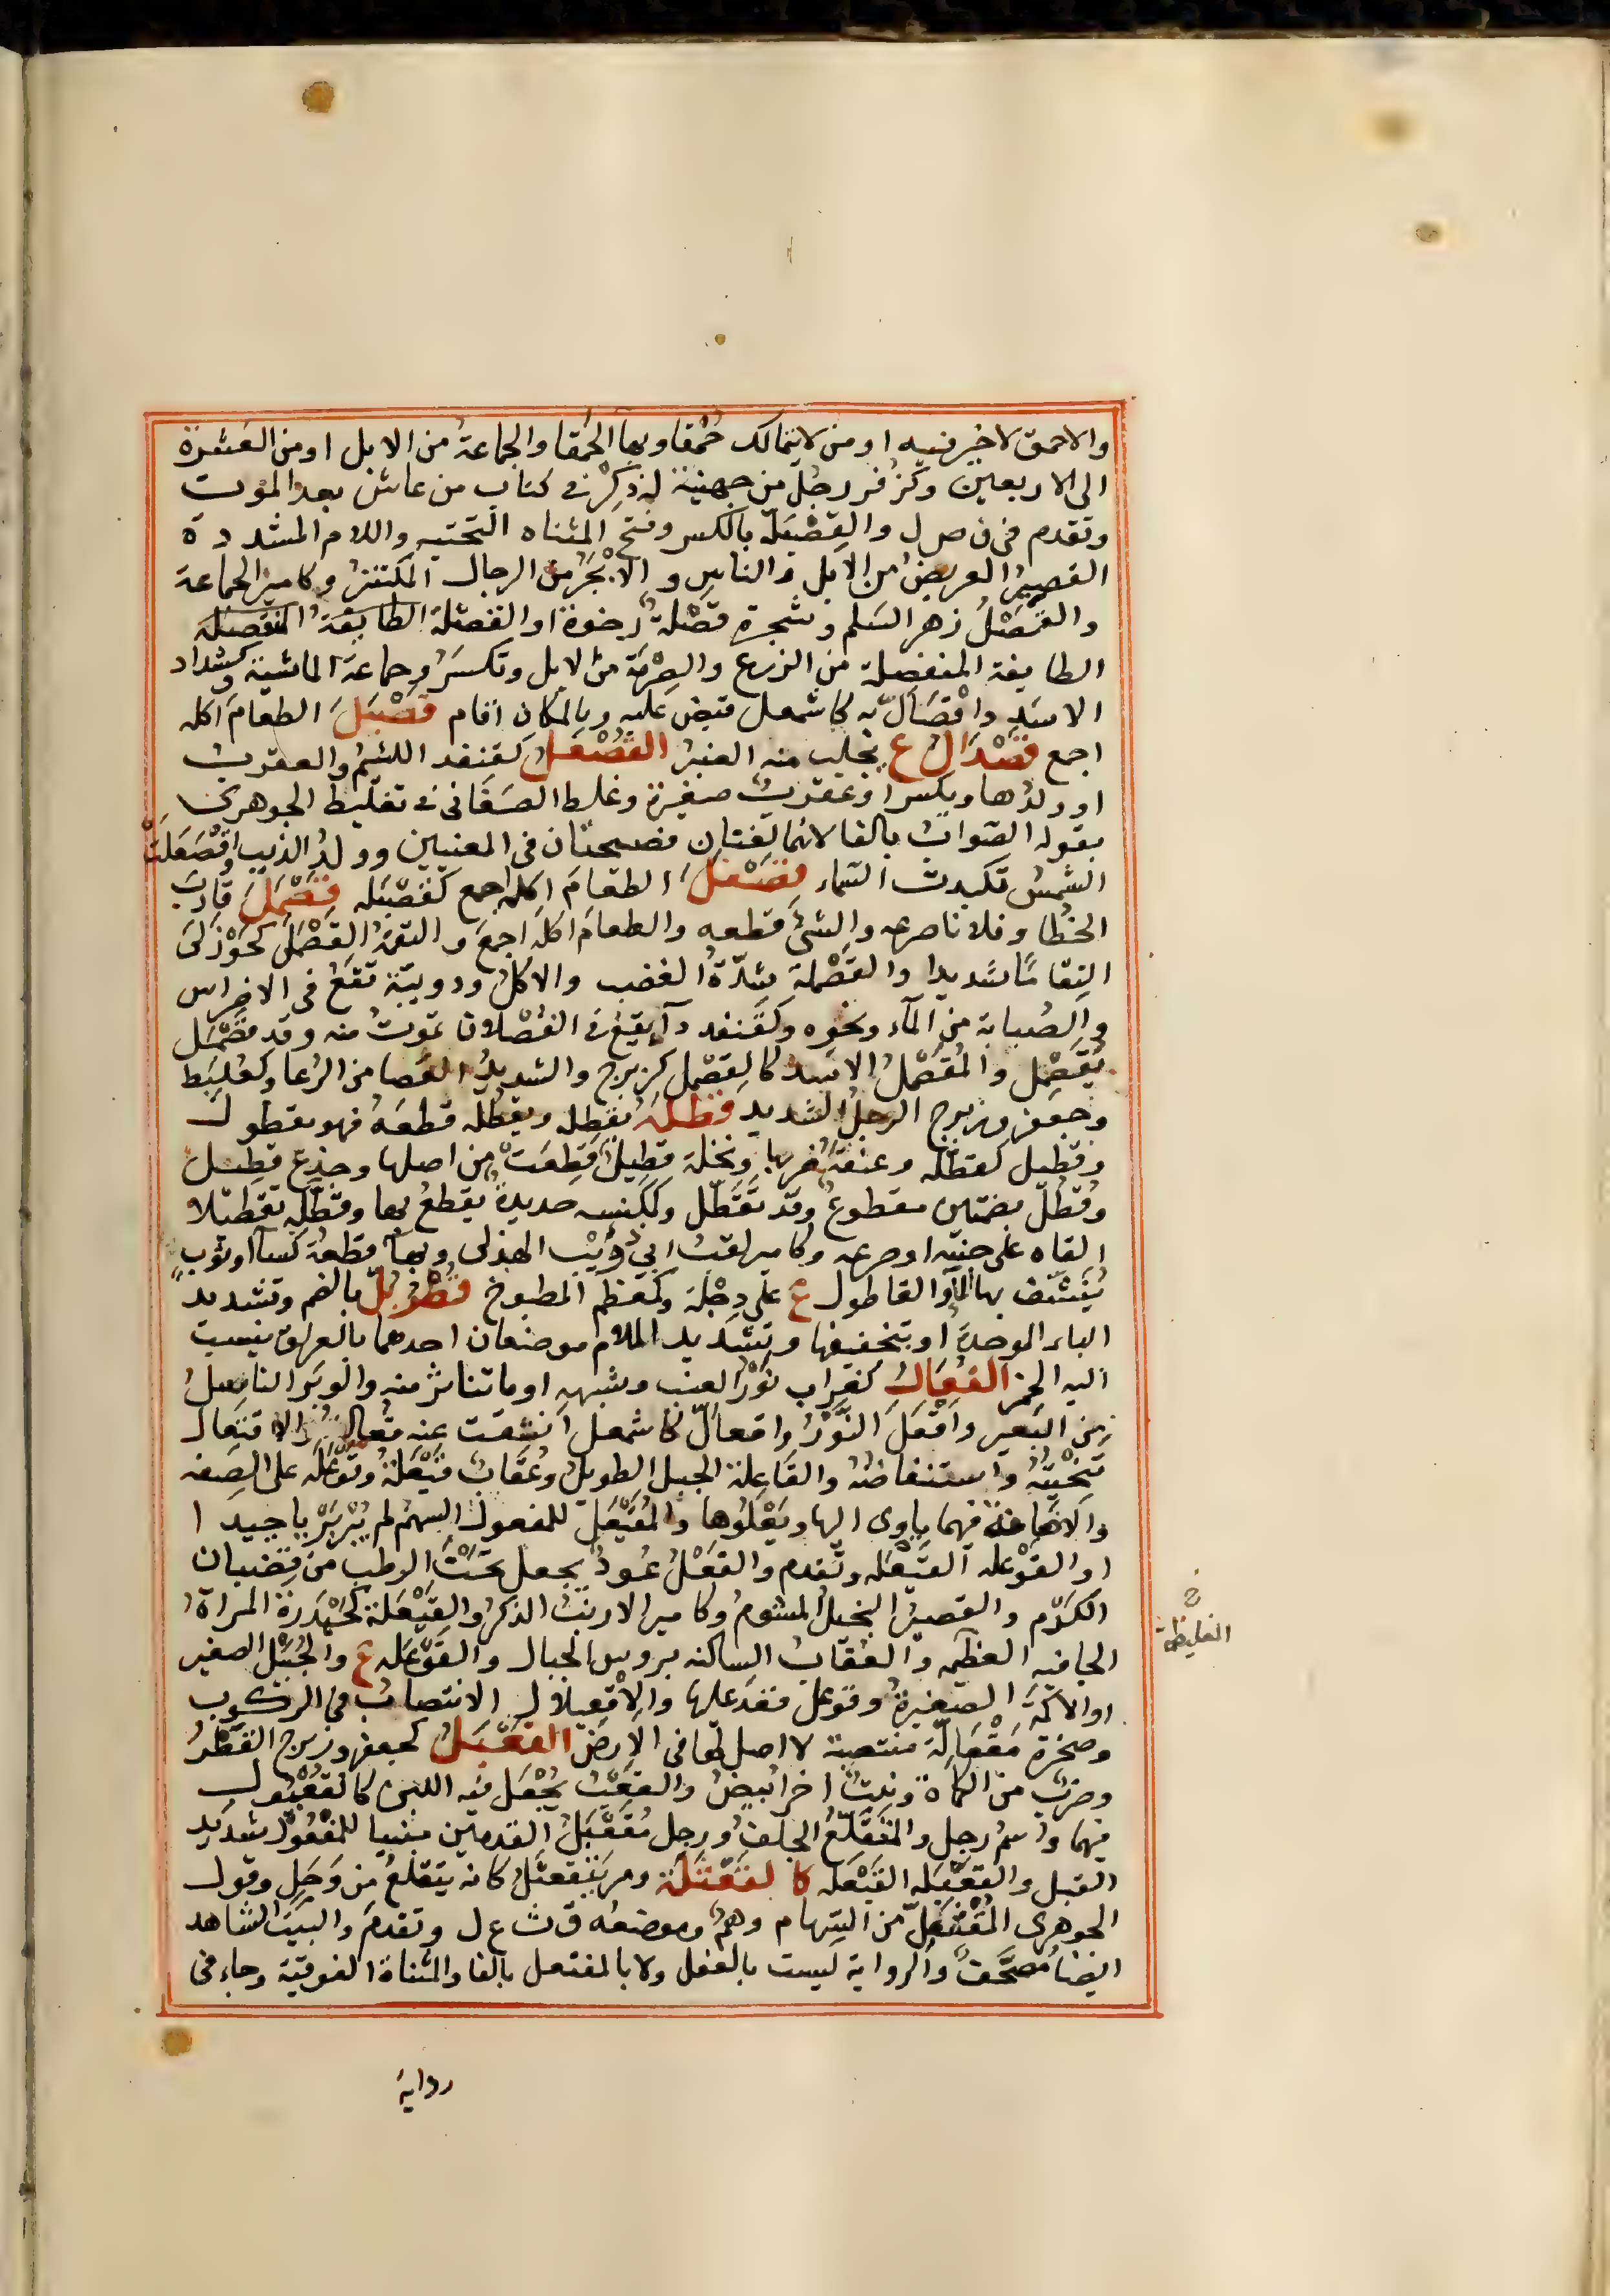 والاحمق لا خير فيه او من لا يتمالك حُمقا وبها الحُمقا والجماعةُ من الابل او من العشرة
الى الاربعين وكزُفر رجُل من جهينة له ذِكرٌ في كتاب من عاش بعد الموت
وتقدم في ف ص ل والقِصْيَلّ بالكسر وفتح المثناه التحتيه واللام المشددة
القصيرُ العريضُ من الابل والناس و من الرجال المكتنز وكامير الجماعة
والقَصْلُ زهر السَلم وشجرة قَصْلةٌ رخوة او القصلة الطايفةُ المنقصلة
الطايفة المنفصلة من الزرع والصِرْمَة من الابل وتكسرُ وجماعة الماشية وكشداد
الاسَد واقْصَألّ به كاشمعل قبض عليه وبالمكان اقام قَصْبَلَ الطعامَ اكله
اجمع قَصْدَالُ ع يجلب منه العنبر القُصْعُلُ كقنفد اللئيمُ والعقربُ
او ولدُها ويكسر او عقربٌ صغيرة وغلط الصَغَاني في تغليط الجوهري
بقوله الصّوابُ بالفا لانهما لغتان فصيحتان في المعنيين وولدُ الذيب واقْصَعَلّت
الشمسُ تكبدت السماء قَصْفَلَ الطعَامَ اكله اجمع كقَصْبَله قَصْمَلَ قاربَ
الخُطا وفلانا صرعه والشئ قطعه والطعامَ اكله اجمعَ والتقمَهُ القَصْمَلَى كخَوْزَلى
التقامًا شديدا والقَصْمَلة شِدّةُ الغضب والاكل ودويبّة تقعُ في الاضراس
والصُبابة من المآء ونحوه وكقنفد دآ يقع في الفُصْلان تموتُ منه وقد قَصْمَل
يُقَصْمِل والمُقَصْمِلُ الاسَد كالقِصْمِل كزبرج والشديدُ العَصا من الرُعا وكعُلَبِط
وجعفر وزبرج الرجلُ الشديد قَطَلَه يَقْطِله ويقطُله قطعَهُ فهو مقطول
وقطيل كقطّله وعنقَهُ ضربها ونخلة قطيلٌ قطِعَتْ من اصلها وجذع قطيل
وقُطُل بضمتين مقطوعٌ وقد تَقَطّل وكمكنسه حديدةٌ يقطعُ بها وقطّله تقطيلا
القاه على جنبه او صرعه وكامير لقبُ ابي ذُؤيْب الهذلى وبهآ قطعَةُ كسآ او ثوبٍ
يُنشّف بها المآ والقاطول ع على دِجْلة وكمعظم المطبوخ قُطْرُبُّلُ بالضم وتشديد
الباء الموحدة او بتخفيفها وتشديد اللام موضعان احدهما بالعراق ينسب
اليه الخمر القُعَال كغراب نَوْرُ العنب وشبهه او ما تناثر منه والوَبَر الناسِلُ
من البَعير واَقْعَلَ النَّوْرُ واقعالّ كاشمعل انشقت عنه قُعالتهُ والاقتِعال
تَنْحِيَتُهُ واستنفاضُه والقاعلة الجبل الطويل وعُقابُ قَيْعَلة وقَوْعَله على الصِفه
والاضافة فيهما ياوى اليها ويَعْلُوها والمُقْيَعِلّ للمفعول السهمُ لم يُبْرَ بَرْيا جيدا
او القوْعله القَيْعَله وتقدم والقَعْلُ عُودٌ يجعل تحْتَ الرطب من قضبان
الكَرْم والقصيرُ البخيلُ المشومُ وكامير الارنبُ الذكرُ والقَيْعَلةُ كحَيْدَرة المراةُ
الجافيه العظيمه والعُقابُ الساكنه برؤس الجبال والقَوْعَله ع والجُبَيْل الصغير
او الاكَمَة الصَغيرة وقوعل قعَد عليها والاِقْعِيلال الانتصابُ في الركوب
وصخرة مُقْعَالّة منتصبة لا اصل لها في الاَرض القَعْبَلُ كجعفر وزبرج الفُطْرُ
وضربُ من الكمأة ونبتُ اخر ابيضُ والقعْبُ يُجْعَل فيه اللبن كالقُعْبول
فيهما واسمُ رجل والمُتَقَلِّعُ الجلفُ ورجل مُقَعْبَلُ القدمين مبنيا للمفعول شديد
القبل والقعْبَله القَيْعَله كالقَعْثَلَة ومر يَتَقَعْثَلُ كانه يتقلعُ من وَحَلٍ وقول
الجوهرى المُقْثَعِلّ من السّهام وهمٌ وموضعُه ق ث ع ل وتقدمَ والبيْتُ الشاهد
ايضاً مُصحَّفٌ والرواية ليست بالفعل ولا بالمفتعل بالفا والمثناة الفوقيّة وجاء في
الغليظة
رواية